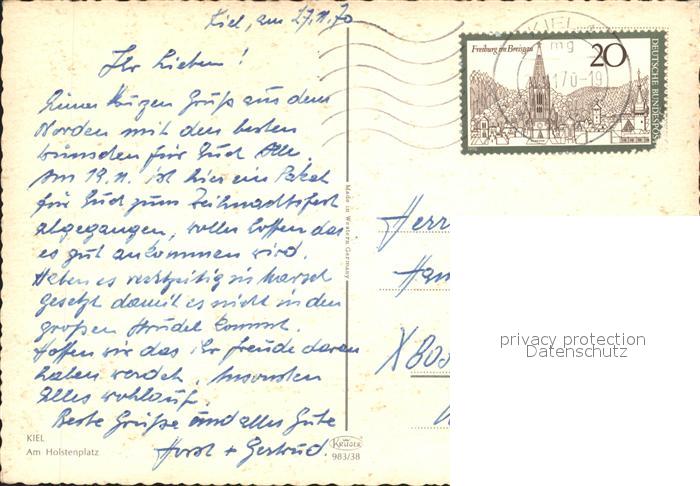 Kiel, am 27.11.70
Ihr Lieben!
Einen kurzen Gruß aus dem
Norden mit den besten
wünschen für Euch Alle,
Am 19.11. ist hier ein Paket
für Euch zum Weihnachtsfest
abgegangen, wollen hoffen das
es gut ankommen wird.
Haben es rechtzeitig in Marsch
gesetzt damit es nicht in den
großen Strudel kommt.
Hoffen wir das ihr freude daran
haben werdet, Ansonsten
alles wohlauf.
Beste Grüße und alles Gute
Horst + Gertrud.
KIEL
Am Holstenplatz
Made in Western Germany
KRÜGER
983/38
KIEL
mg
11.70-19
Freiburg im Breisgau
20
DEUTSCHE BUNDESPOST
Herr
X 80
privacy protection
Datenschutz